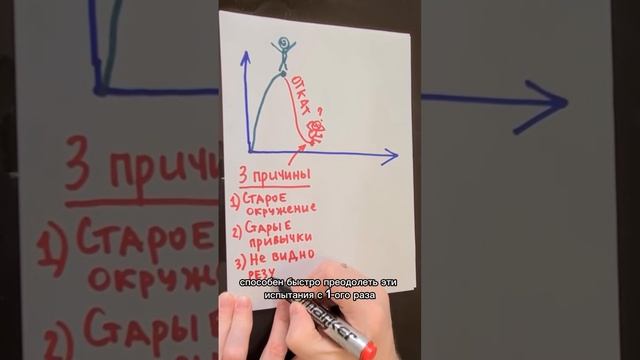 ОТКАТ
?
3 причины
1) Старое
окружение
2) Старые
привычки
3) Не видно
резу
способен быстро преодолеть эти
испытания с 1-ого раза
marker
1) Старое
окруже
2) Старые